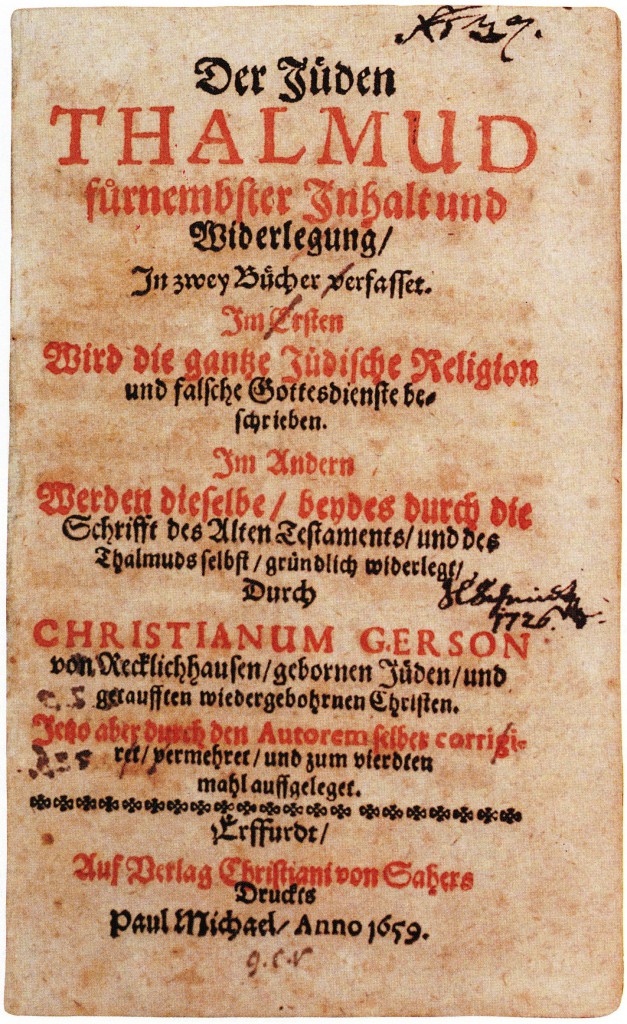 Der Jüden
THALMUD
fürnembster Inhalt und
Widerlegung/
In zwey Bücher verfasset.
Im Ersten
Wird die gantze Jüdische Religion
und falsche Gottesdienste be-
schrieben.
Im Andern
Werden dieselbe/ beydes durch die
Schrifft des Alten Testaments/ und des
Thalmuds selbst/ gründlich widerlegt/
Durch
CHRISTIANUM GERSON
von Recklichhausen/ gebornen Jüden/ und
getaufften wiedergebohrnen Christen.
Jetzo aber durch den Autorem selber corrigi-
ret/ vermehret/ und zum vierdten
mahl auffgeleget.
Erffurdt/
Auf Verlag Christiani von Sahers
Druckts
Paul Michael/ Anno 1659.
1726.